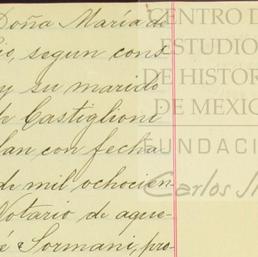 Doña María de
segun cons
y su marido
Castiglioni
lan con fecha
de mil ochocien-
Notario de aque-
é Sormani, pro-
CENTRO D
ESTUDIO
DE HISTOR
DE MEXIC
FUNDACI
Carlos